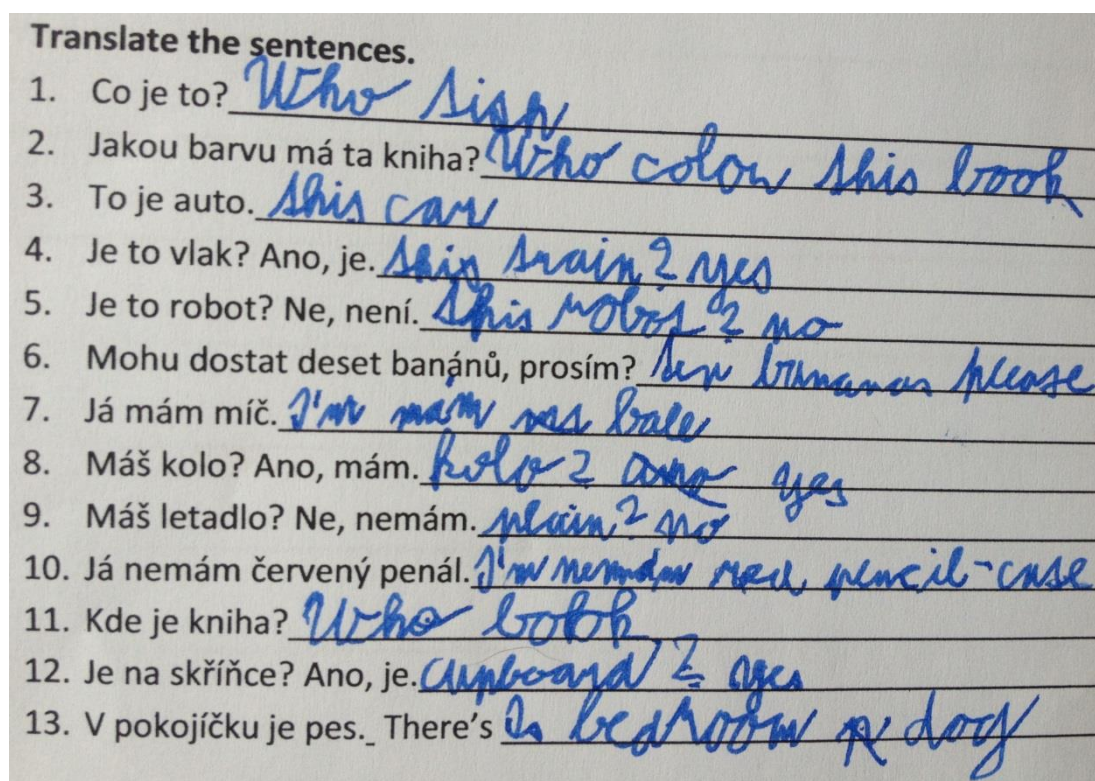 Translate the sentences.
1. Co je to? Who
2. Jakou barvu má ta kniha? Who colou this book
3. To je auto. this car
4. Je to vlak? Ano, je. this train? yes
5. Je to robot? Ne, není. this robot? no
6. Mohu dostat deset banánů, prosím? ten please
7. Já mám míč. I'm mám
8. Máš kolo? Ano, mám. kolo? yes
9. Máš letadlo? Ne, nemám. plain? no
10. Já nemám červený penál. I'm nemám red pencil-case
11. Kde je kniha? Who book
12. Je na skříňce? Ano, je. cupboard? yes
13. V pokojíčku je pes. There's Is bedroom dog